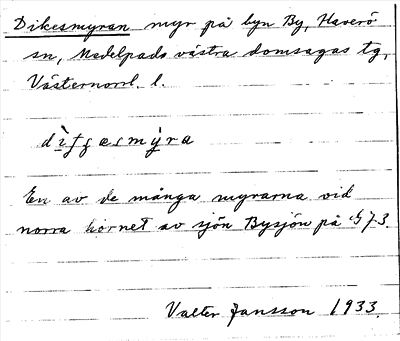 Dikesmyran myr på byn By, Haverö
sn, Medelpads västra domsagas tg,
Västernorrl. l.
En av de många myrarna vid
norra hörnet av sjön Bysjön på
Valter Jansson 1933.